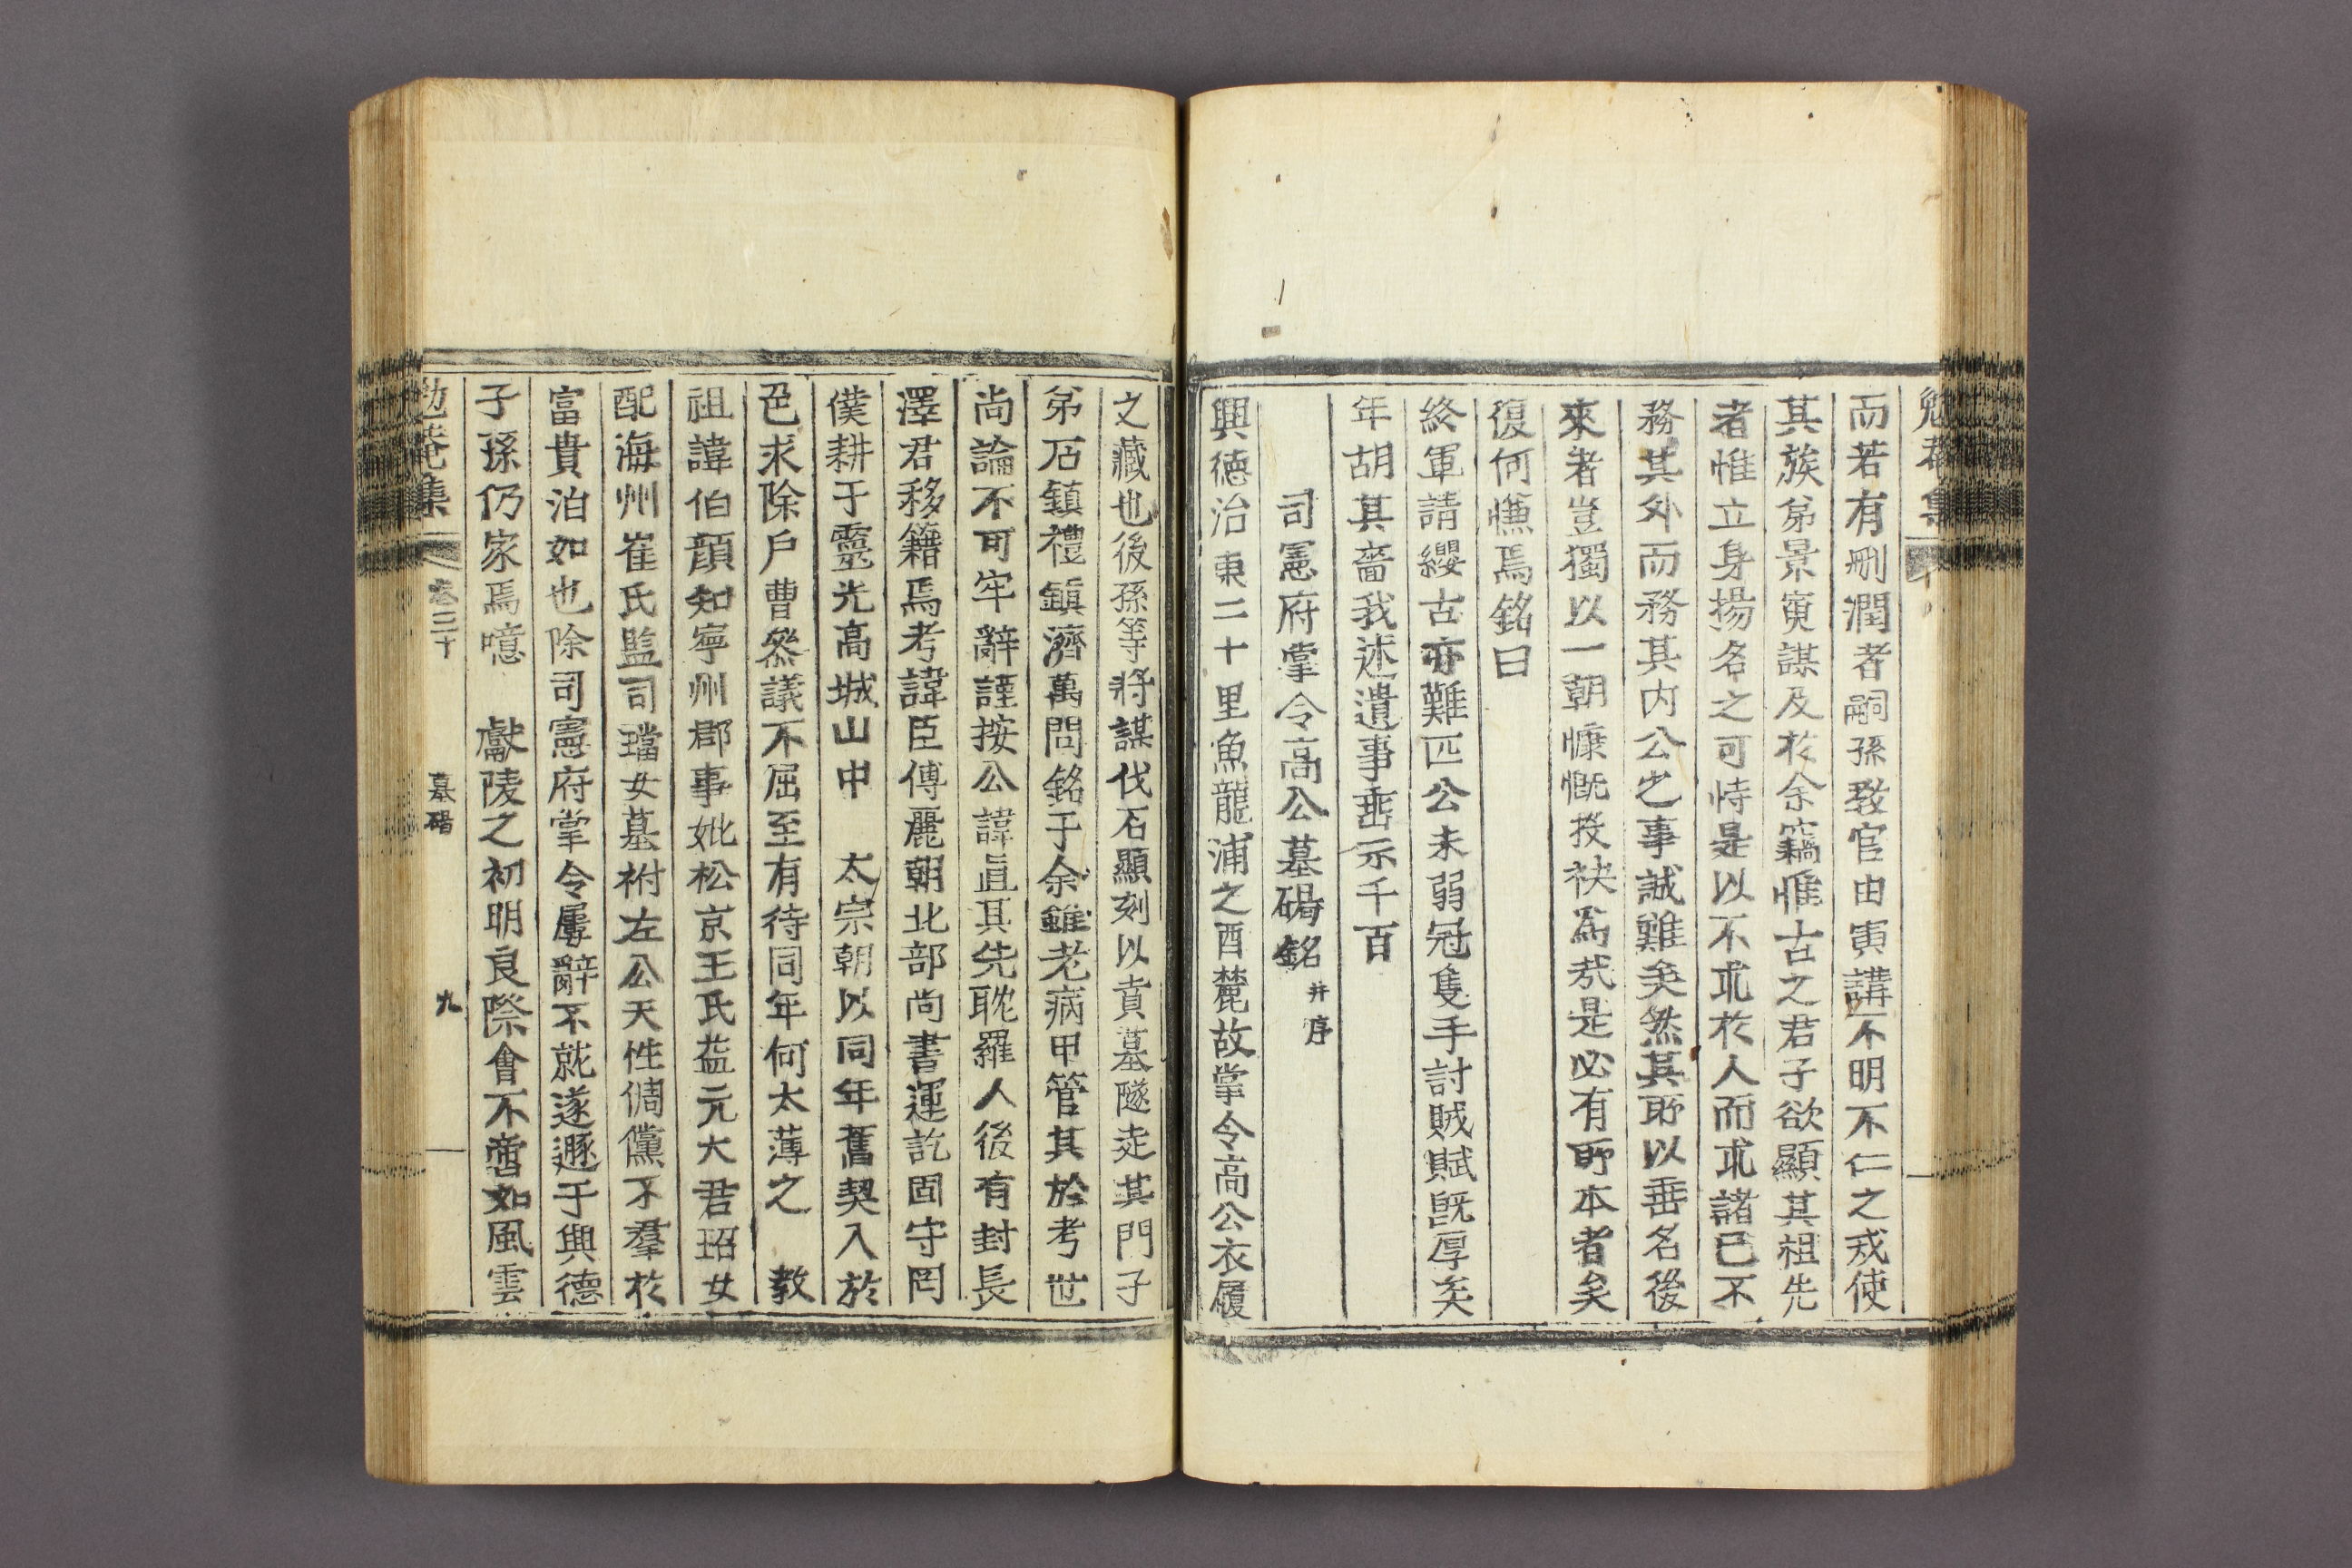 勉菴集
而若有刪潤者嗣孫敎官由寅講不明不仁之戒使
其族弟景寅謀及於余竊惟古之君子欲顯其祖先
者惟立身揚名之可恃是以不求於人而求諸己不
務其外而務其内公之事誠難矣然其所以垂名後
來者豈獨以一朝慷慨投袂爲哉是必有所本者矣
復何慊焉銘曰
終軍請纓古亦難匹公未弱冠隻手討賊賦旣厚矣
年胡其嗇我述遺事垂示千百
司憲府掌令高公墓碣銘 幷序
興德治東二十里魚龍浦之酉麓故掌令高公衣履
之藏也後孫等將謀伐石顯刻以賁墓隧走其門子
弟石鎭禮鎭濟萬問銘于余雖老病甲管其於考世
尚論不可牢辭謹按公諱直其先耽羅人後有封長
澤君移籍焉考諱臣傅麗朝北部尚書運訖固守罔
僕耕于靈光高城山中 太宗朝以同年舊契入於
邑求除戶曹叅議不屈至有待同年何太薄之 敎
祖諱伯顔知寧州郡事妣松京王氏益元大君玿女
配海州崔氏監司璫女墓祔左公天性倜儻不羣於
富貴泊如也除司憲府掌令屢辭不就遂遯于興德
子孫仍家焉噫 獻陵之初明良際會不啻如風雲
勉菴集 卷三十 墓碣 九